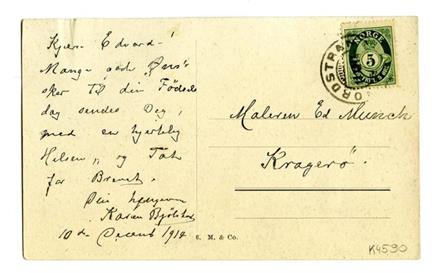 Kjære Edvard!
Mange gode Øns"
sker til din Føds
dag sendes Deg,
med en hjertelig
Hilsen, og Tak
for Brevet.
Din hengivne
Karen Bjølstad
10de Decemb 1912
6. M. & Co.
NORGE
5
NORDSTRA
Maleren Ed Munch
Kragerø.
K4590